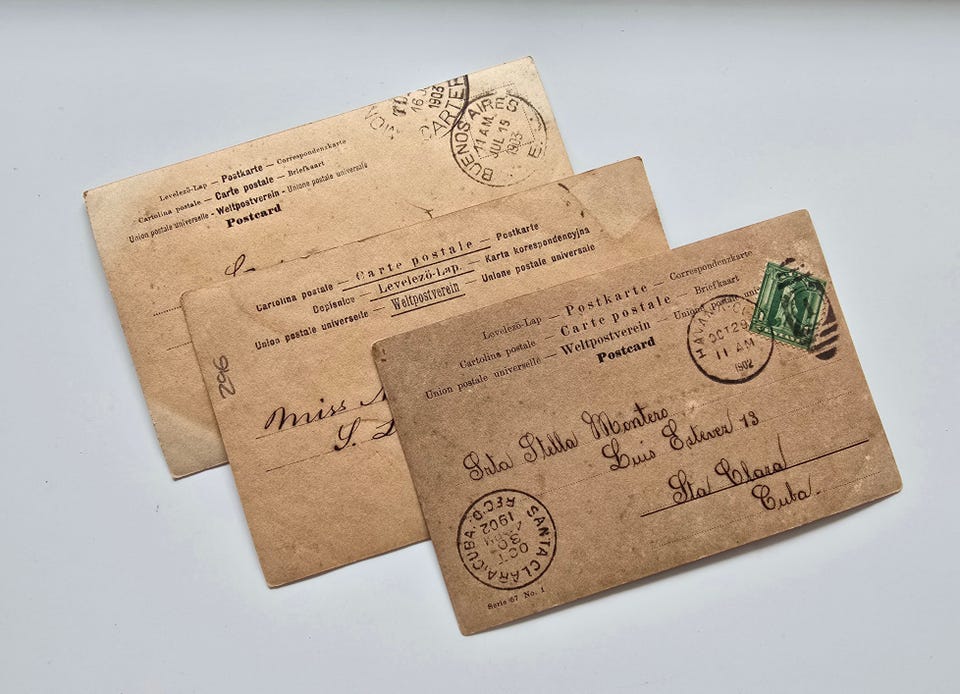 16
1903
CARTER
BUENOS AIRES
11 AM
JUL 19
1903
E.
Levelező-Lap — Postkarte — Correspondenzkarte
Cartolina postale — Carte postale — Briefkaart
Union postale universelle - Weltpostverein - Unione postale universale
Postcard
Cartolina postale — Carte postale — Postkarte
Dopisnice — Levelező-Lap. — Karta korespondencyjna
Union postale universelle — Weltpostverein — Unione postale universale
296
Miss
S.
Levelező-Lap — Postkarte — Correspondenzkarte
Cartolina postale — Carte postale — Briefkaart
Union postale universelle — Weltpostverein —
Postcard
HAVANA
OCT 29
11 AM
1902
Srta Stella Montero
Luis Estevez 13
Sta Clara
Cuba.
SANTA CLARA, CUBA.
OCT
30
1902
REC'D.
Serie 67 No. 1